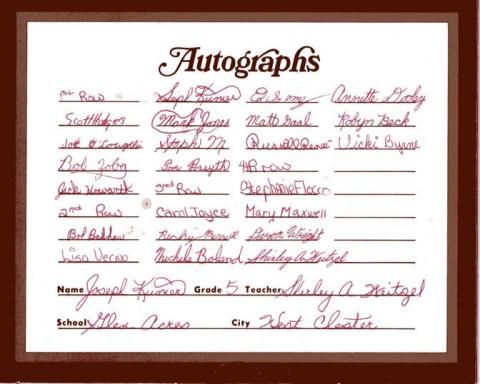 Autographs
1st Row Joseph Kumor Ed Annette Dooley
Scott Hodges Mark Jones Matt Gaal Robyn Beck
Joe Steph M Russell Renee Vicki Byrne
Bob Zoby Tom Forsyth 4th row
Jack Howarth 3rd Row Stephanie
2nd Row Carol Joyce Mary Maxwell
Bob Devon Wright
Lisa Michele Boland Shirley A Weitzel
Name Joseph Kumor Grade 5 Teacher Shirley A Weitzel
School Glen Acres City West Chester